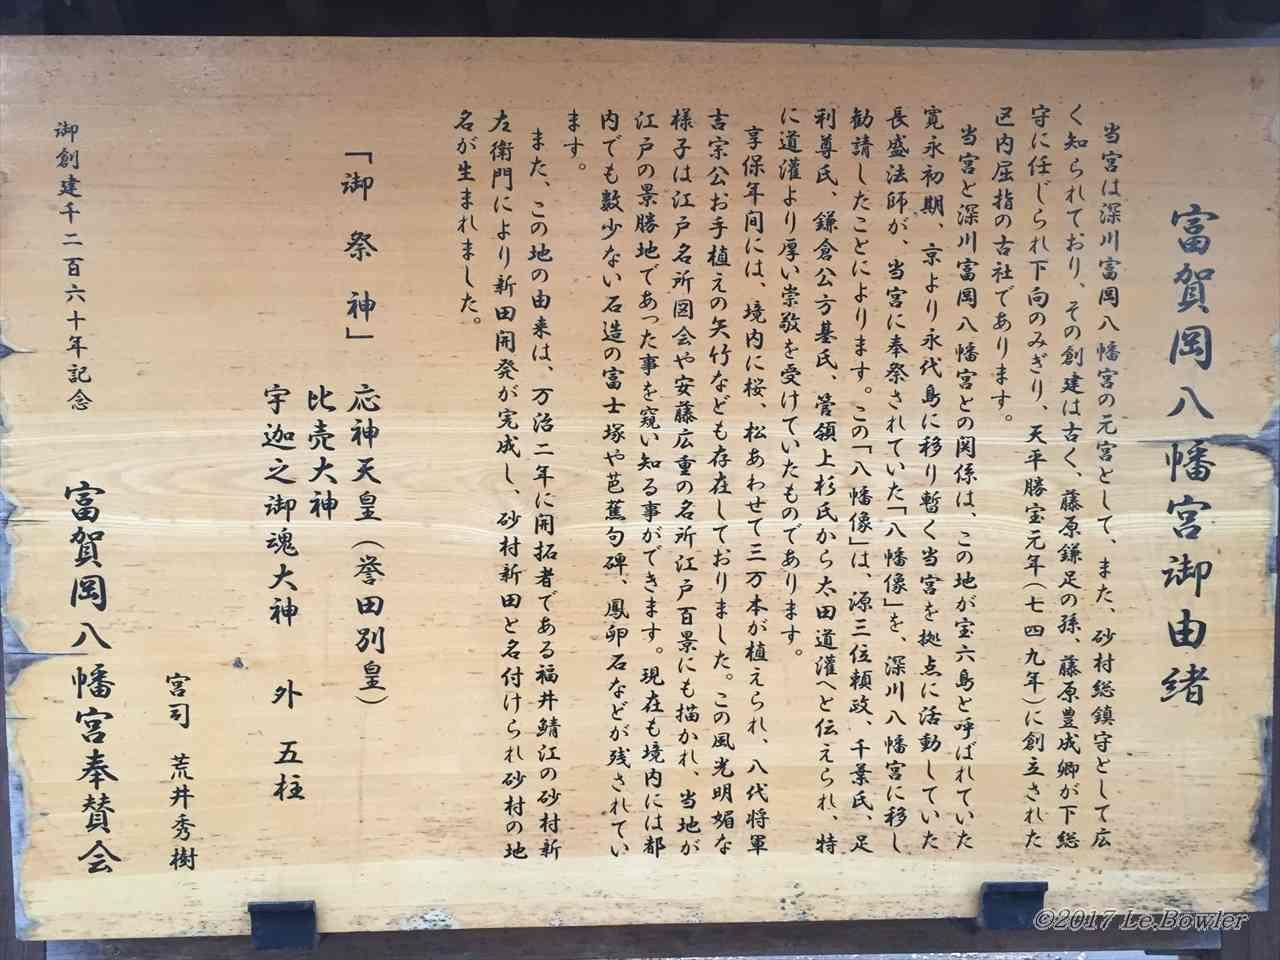 富賀岡八幡宮御由緒
当宮は深川富岡八幡宮の元宮として、また、砂村総鎮守として広
く知られており、その創建は古く、藤原鎌足の孫、藤原豊成卿が下総
守に任じられ下向のみぎり、天平勝宝元年(七四九年)に創立された
区内屈指の古社であります。
当宮と深川富岡八幡宮との関係は、この地が宝六島と呼ばれていた
寛永初期、京より永代島に移り暫く当宮を拠点に活動していた
長盛法師が、当宮に奉祭されていた「八幡像」を、深川八幡宮に移し
勧請したことによります。この「八幡像」は、源三位頼政、千葉氏、足
利尊氏、鎌倉公方基氏、管領上杉氏から太田道灌へと伝えられ、特
に道灌より厚い崇敬を受けていたものであります。
享保年間には、境内に桜、松あわせて三万本が植えられ、八代将軍
吉宗公お手植えの矢竹なども存在しておりました。この風光明媚な
様子は江戸名所図会や安藤広重の名所江戸百景にも描かれ、当地が
江戸の景勝地であった事を窺い知る事ができます。現在も境内には都
内でも数少ない石造の富士塚や芭蕉句碑、鳳卵石などが残されてい
ます。
また、この地の由来は、万治二年に開拓者である福井鯖江の砂村新
左衛門により新田開発が完成し、砂村新田と名付けられ砂村の地
名が生まれました。
「御祭神」 応神天皇(誉田別皇)
比売大神
宇迦之御魂大神 外 五柱
宮司 荒井秀樹
富賀岡八幡宮奉賛会
御創建千二百六十年記念
©2017 Le.Bowler